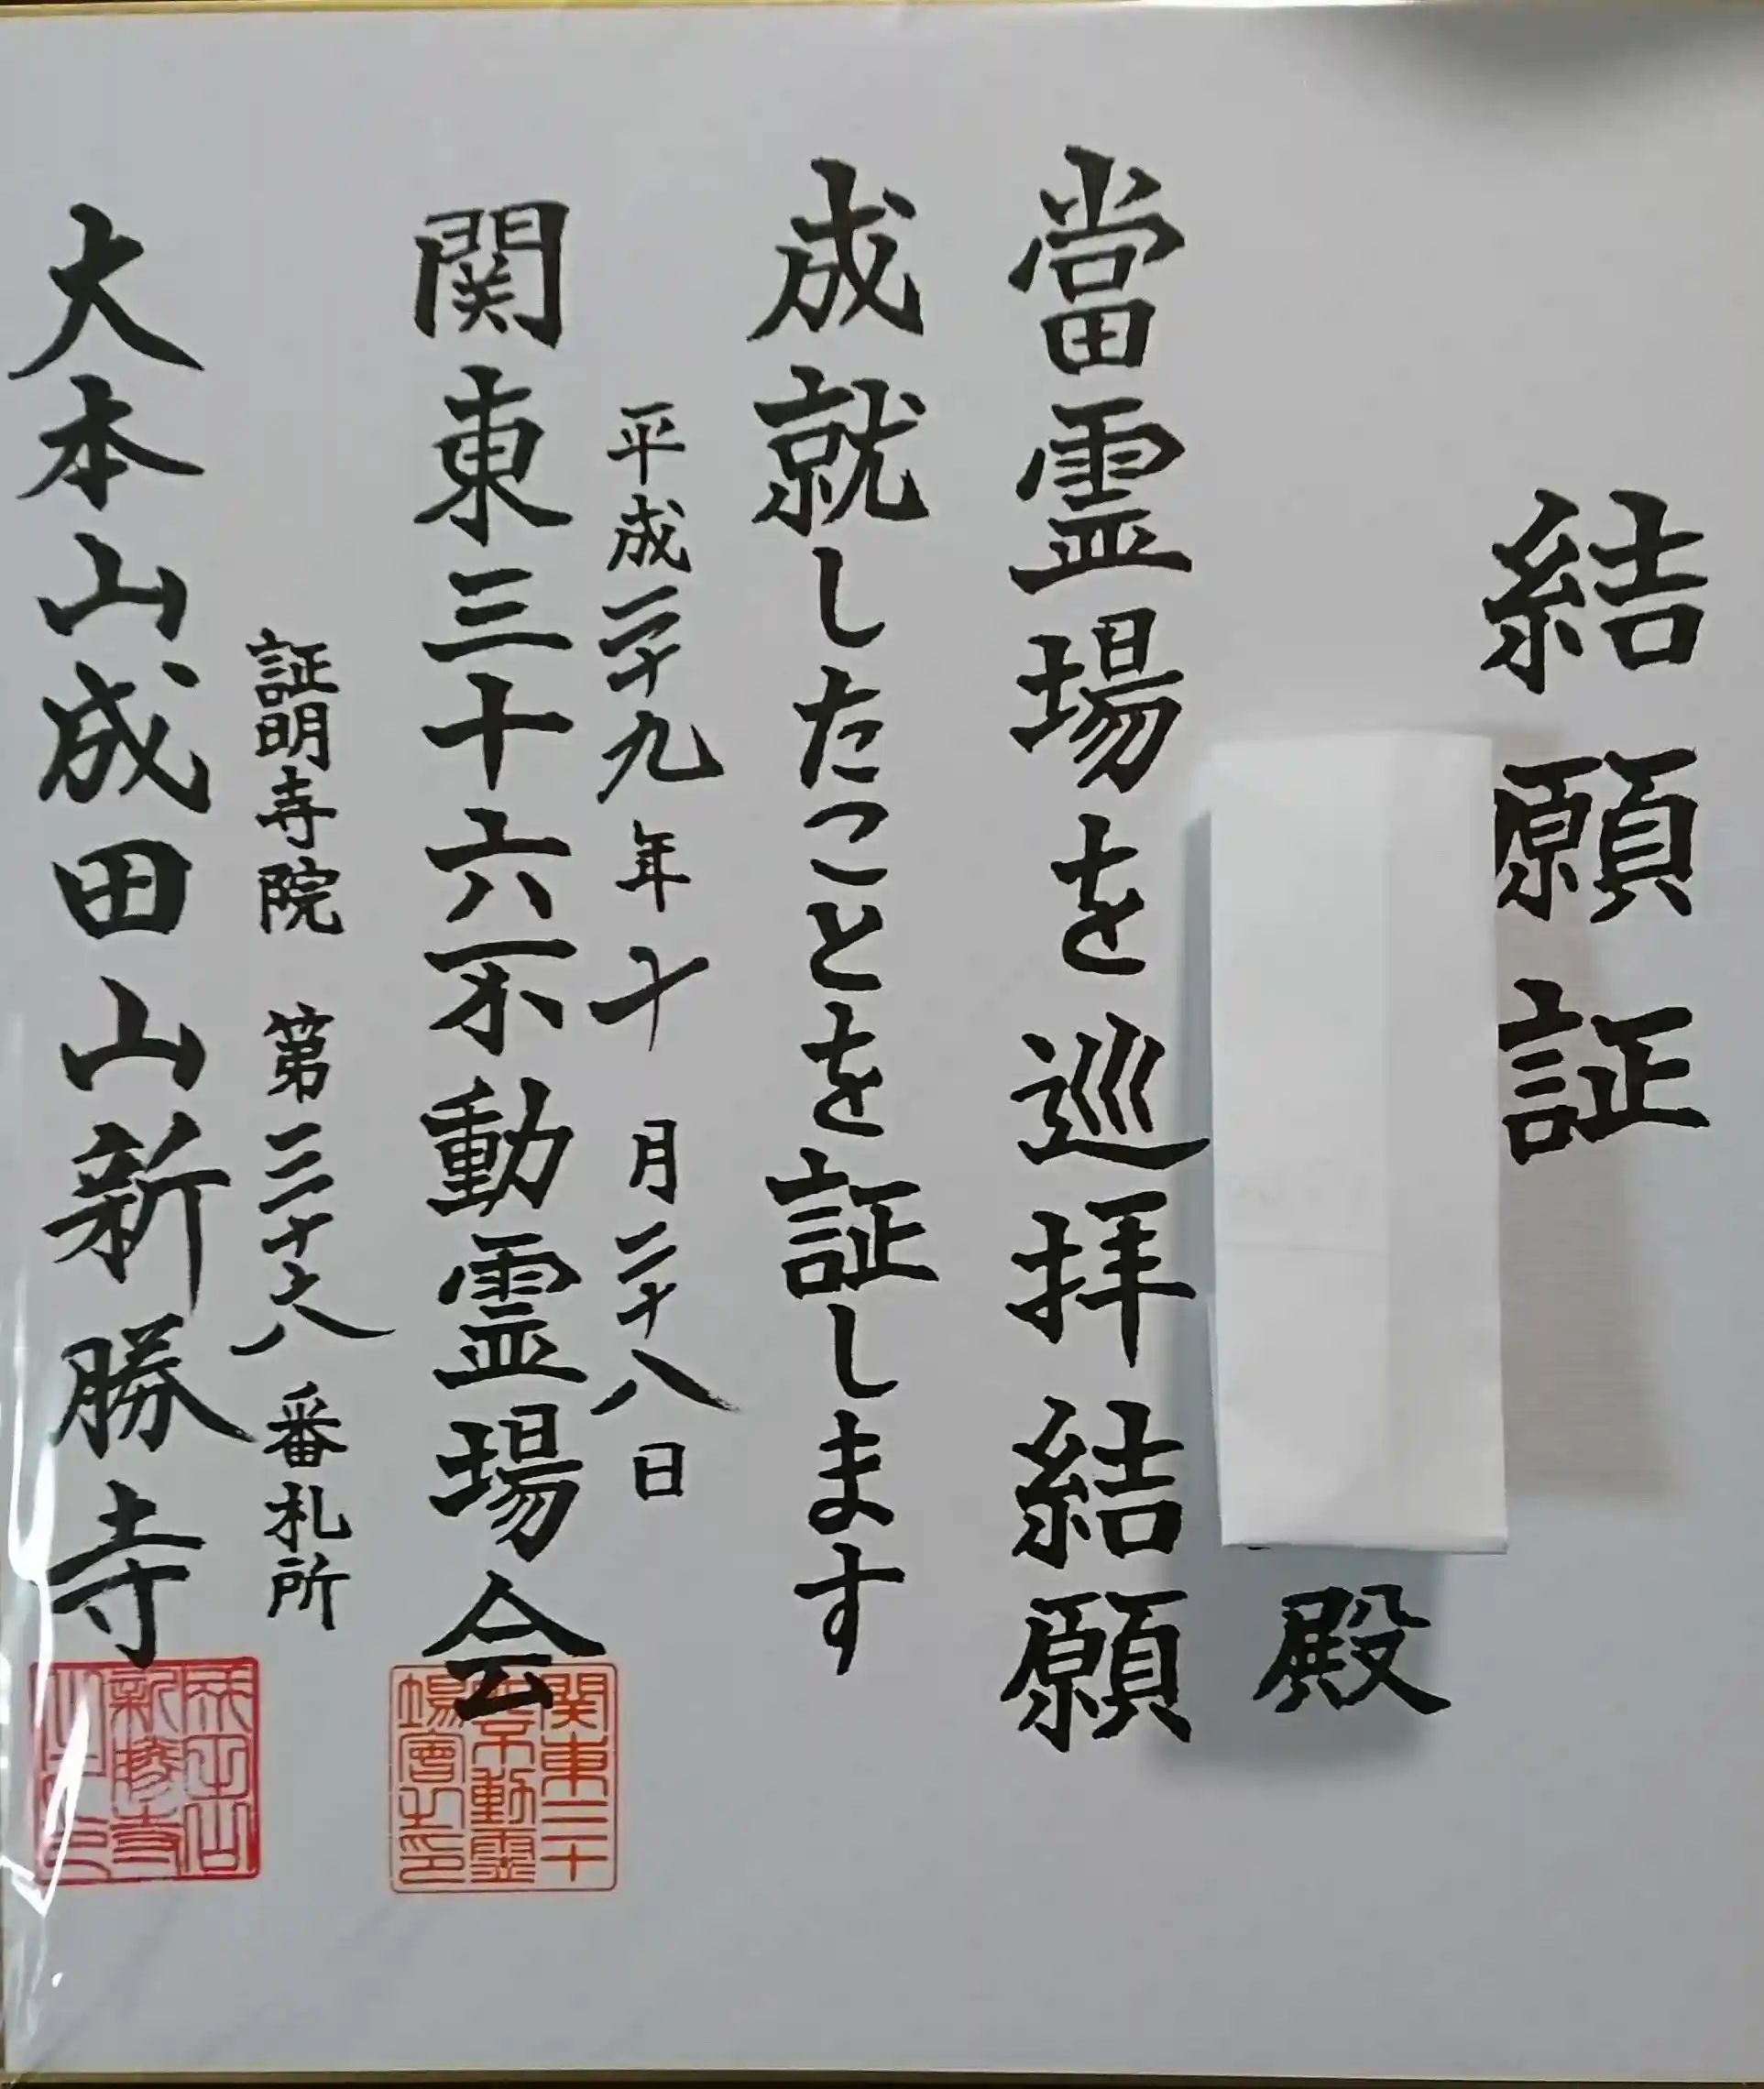 結願証
殿
當霊場を巡拝結願
成就したことを証します
平成二十九年十月二十八日
関東三十六不動霊場会
証明寺院 第三十六番札所
大本山成田山新勝寺
関東三十
六不動霊
場會之印
成田山
新勝寺
之印